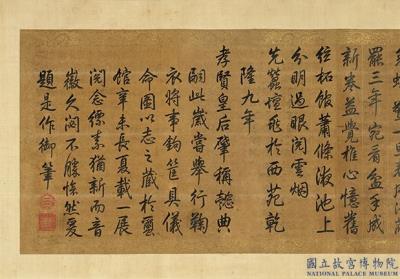 罷三年宛看盆手成
新卷益覺惟心憶舊
位柘館蕭條液池上
分明過眼閱雲煙
先蠶壇飛於西苑乾
隆九年
孝賢皇后肇稱懿典
嗣此歲嘗舉行鞠
衣將事鉤筐具儀
命圖以志之藏於蠶
館辛未長夏載一展
閱念縹素猶新而音
徽久閟不勝愴然爰
題是作御筆
國立故宮博物院
NATIONAL PALACE MUSEUM